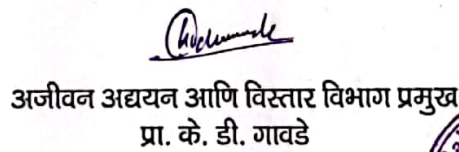 अजीवन अद्ययन आणि विस्तार विभाग प्रमुख
प्रा. के. डी. गावडे